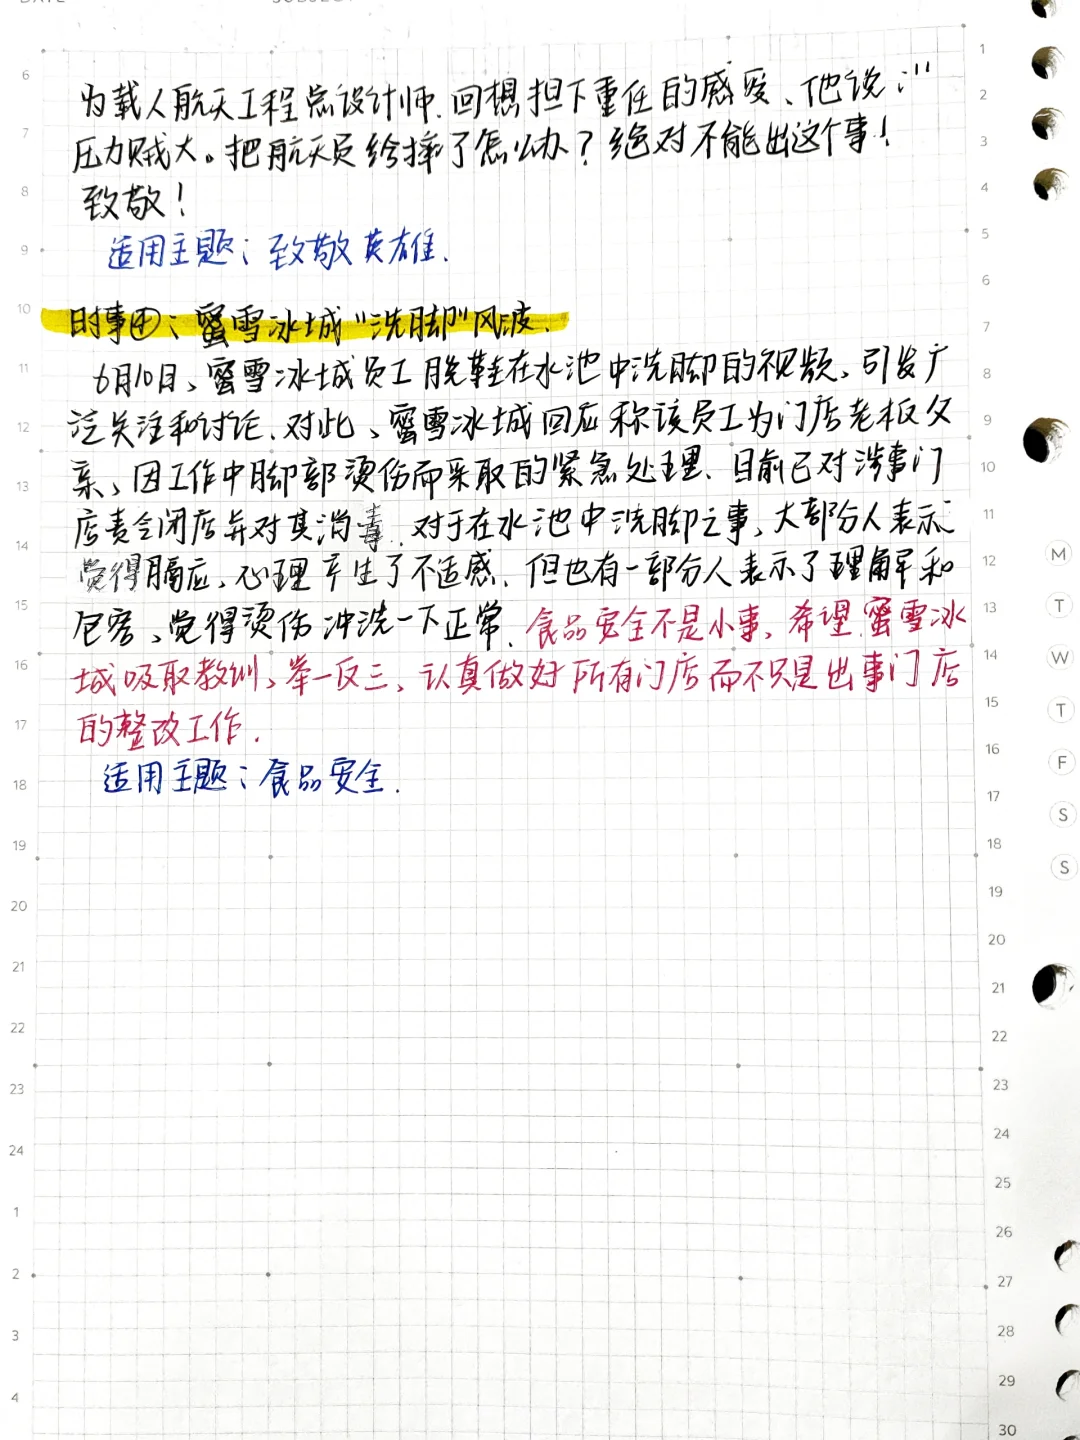 为载人航天工程总设计师.回想担下重任的感受、他说:"
压力贼大。把航天员给摔了怎么办?绝对不能出这个事!
致敬!
适用主题:致敬英雄.
时事④:蜜雪冰城"洗脚"风波.
6月10日、蜜雪冰城员工脱鞋在水池中洗脚的视频、引发广
泛关注和讨论.对此、蜜雪冰城回应称该员工为门店老板父
亲、因工作中脚部烫伤而采取的紧急处理.目前已对涉事门
店责令闭店并对其消毒.对于在水池中洗脚之事、大部分人表示
觉得膈应、心理产生了不适感.但也有一部分人表示了理解和
包容、觉得烫伤冲洗一下正常.食品安全不是小事、希望蜜雪冰
城吸取教训、举一反三、认真做好所有门店而不只是出事门店
的整改工作.
适用主题:食品安全.
6
7
8
9
10
11
12
13
14
15
16
17
18
19
20
21
22
23
24
1
2
3
4
1
2
3
4
5
6
7
8
9
10
11
12
13
14
15
16
17
18
19
20
21
22
23
24
25
26
27
28
29
30
M
T
W
T
F
S
S